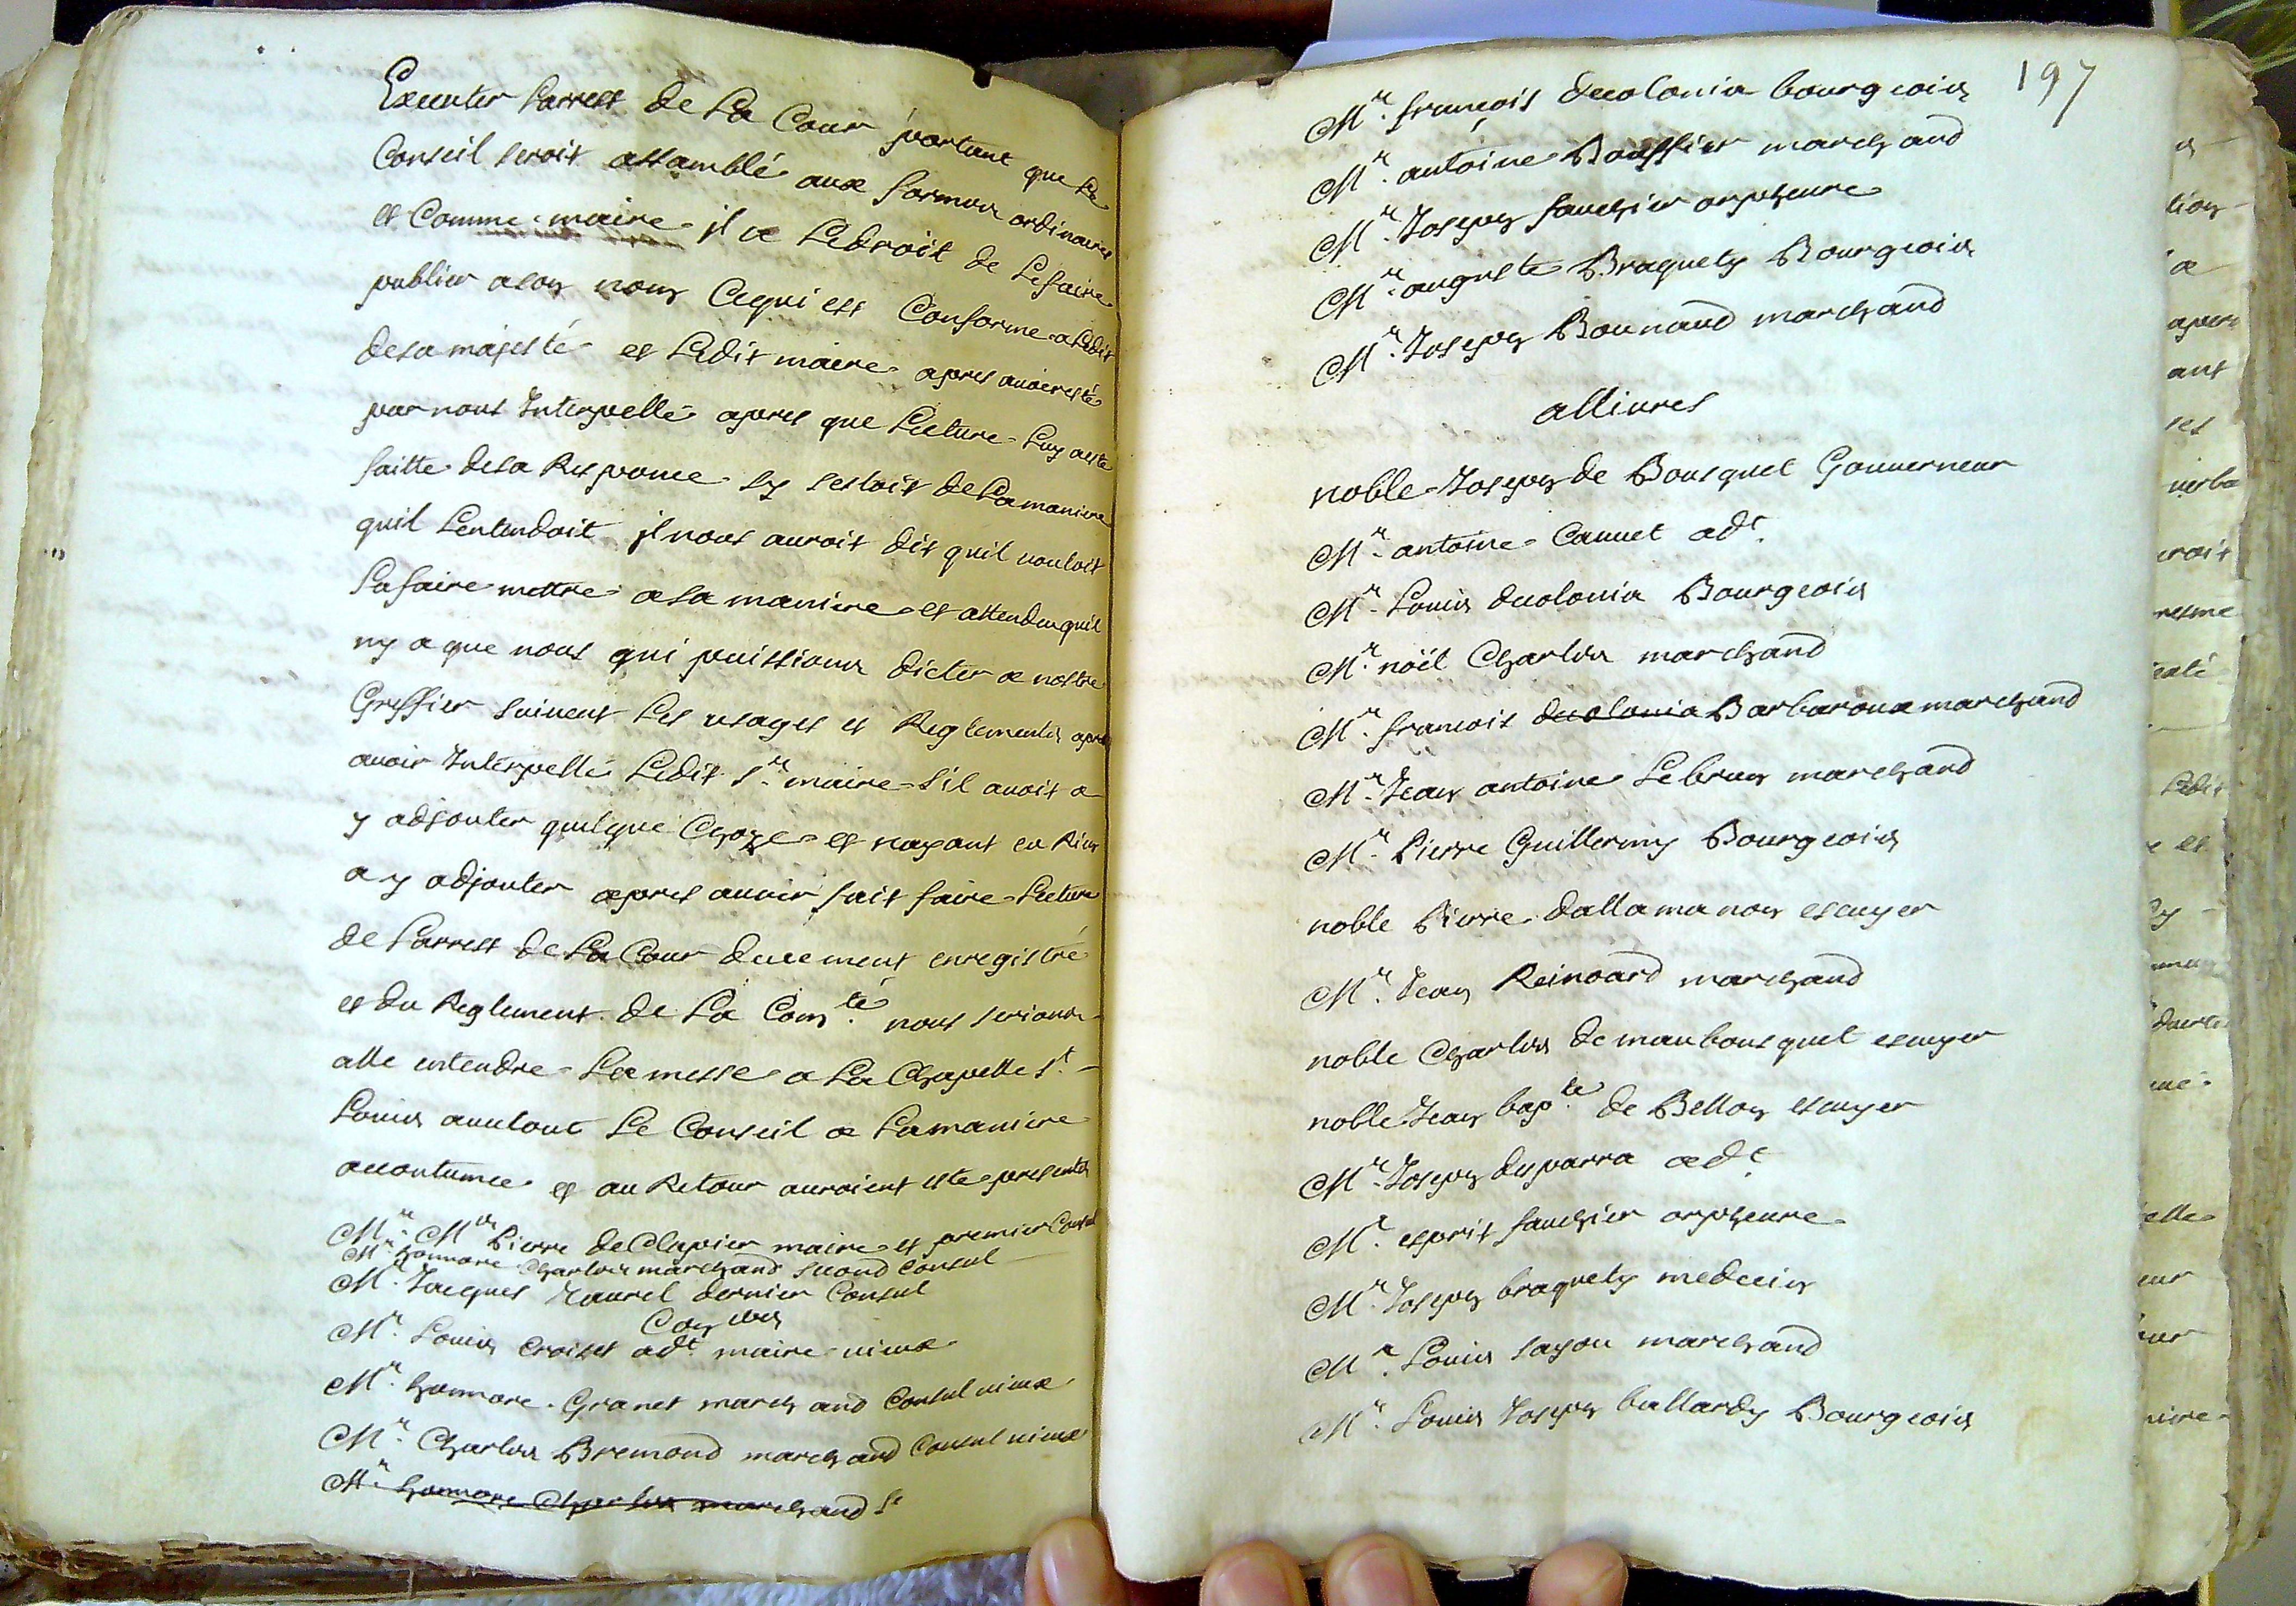 Executer Larrest de La Cour portant que Le
Conseil seroit assamblé aux formes ordinaires
et Comme maire il a Ledroit de Lefaire
publier a son nom Cequi est Conforme a Ledit
desa majesté et Ledit maire apres avoir esté
par nous Interpellé apres que Lecture Luy a esté
faitte desa Responce sy sestoit de Lamaniere
quil Lentendoit il nous auroit dit quil vouloit
Lafaire mettre a sa maniere et attendu quil
ny a que nous qui puissions dicter a nostre
Greffier suivent Les usages et Reglements apres
avoir Interpellé Ledit sr. maire sil avoit a
y adjouter quelque Choze et nayant eu Rien
a y adjouter apres avoir fait faire Lecture
de Larrest de La Cour deuement enregistré
et du Reglement de La Comté. nous serions
alle entendre La messe a La Chapelle st.
Louis avec tout Le Conseil a Lamaniere
accoutumee et au Retour auroient este presents
Mr. Mre Pierre deClapier maire et premier Consul
Mr. honnore Charles marchand second Consul
Mr. Jacques Laurel dernier Consul
Coners
Mr. Louis Croiset adt. maire vieux
Mr. honnore Granet marchand Consul vieux
Mr. Charles Bremond marchand Consul vieux
Mr. honnore Charles marchand se
197
Mr. francois decolonia bourgeois
Mr. antoine Bouffier marchand
Mr. Joseph fauchier orpheure
Mr. auguste Braquety Bourgeois
Mr. Joseph Bonnaud marchand
allivres
noble Joseph de Bousquet Gouverneur
Mr. antoine Cauvet adt.
Mr. Louis decolonia Bourgeois
Mr. noël Charles marchand
Mr. francois decolonia Barbaroux marchand
Mr. Jean antoine Lebrun marchand
Mr. Pierre Guillermy Bourgeois
noble Pierre dallamanon escuyer
Mr. Jean Reinoard marchand
noble Charles de maubousquet escuyer
noble Jean bapte. de Bellon escuyer
Mr. Joseph desparra adt.
Mr. esprit fauchier orpheure
Mr. Joseph braquety medecin
Mr. Louis sayou marchand
Mr. Louis Joseph ballardy Bourgeois